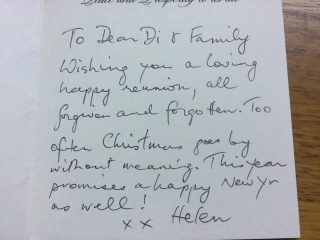 Peace and Prosperity to us all
To Dear Di & Family
Wishing you a loving
happy reunion, all
forgiven and forgotten. Too
often Christmas goes by
without meaning. This year
promises a happy New Yr
as well!
x x Helen